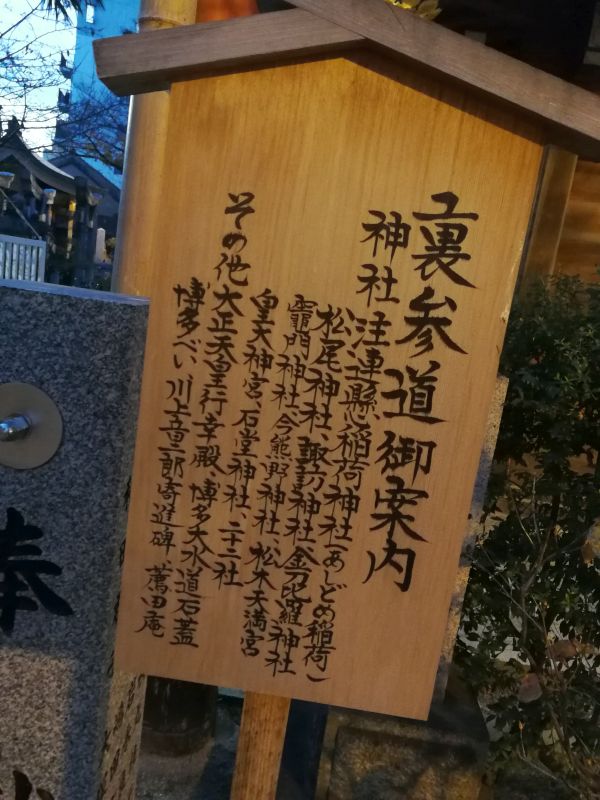 裏参道御案内
神社 注連懸稲荷神社(あしどめ稲荷)
松尾神社、諏訪神社、金刀比羅神社
竈門神社、今熊野神社、松木天満宮
皇天神宮、石堂神社、二十二社
その他 大正天皇行幸殿 博多大水道石蓋
博多べい 川上音二郎寄進碑、薦田庵
奉